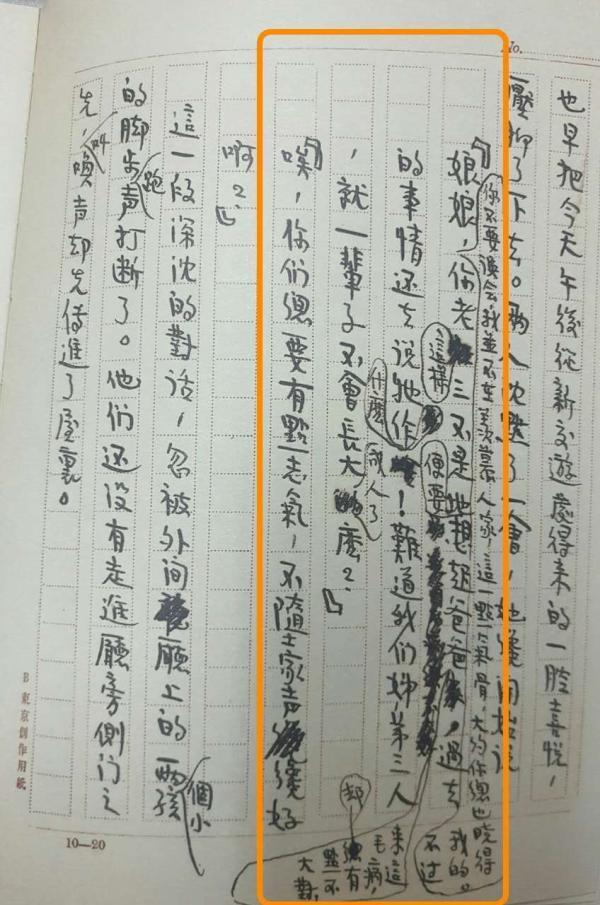 No.
也早把今天午後從新交遊處得来的一腔喜悅，
壓抑了下去。兩人沈默了一會，她纔開始說
你不要误会，我並不在羡慕人家，這一點氣骨，大约你總也晓得我的。
不过
「娘娘，你老三又不是
想起爸爸
過去
這樣
便要
的事情还去说牠作
！難道我们姊弟三人
什麼
成人了
，就一輩子不會長大
麽？」
来這
毛病，
却
總有
點不
大對，
「唉，你们總要有點志氣，不墮士家声
纔好
啊？」
這一段深沈的對话，忽被外间
廳上的兩
個小
孩
的
跑
脚步声打断了。他们还没有走進廳旁側门之
先，
叫
唤声却先傳進了屋裏。
B 東京創作用紙
10—20